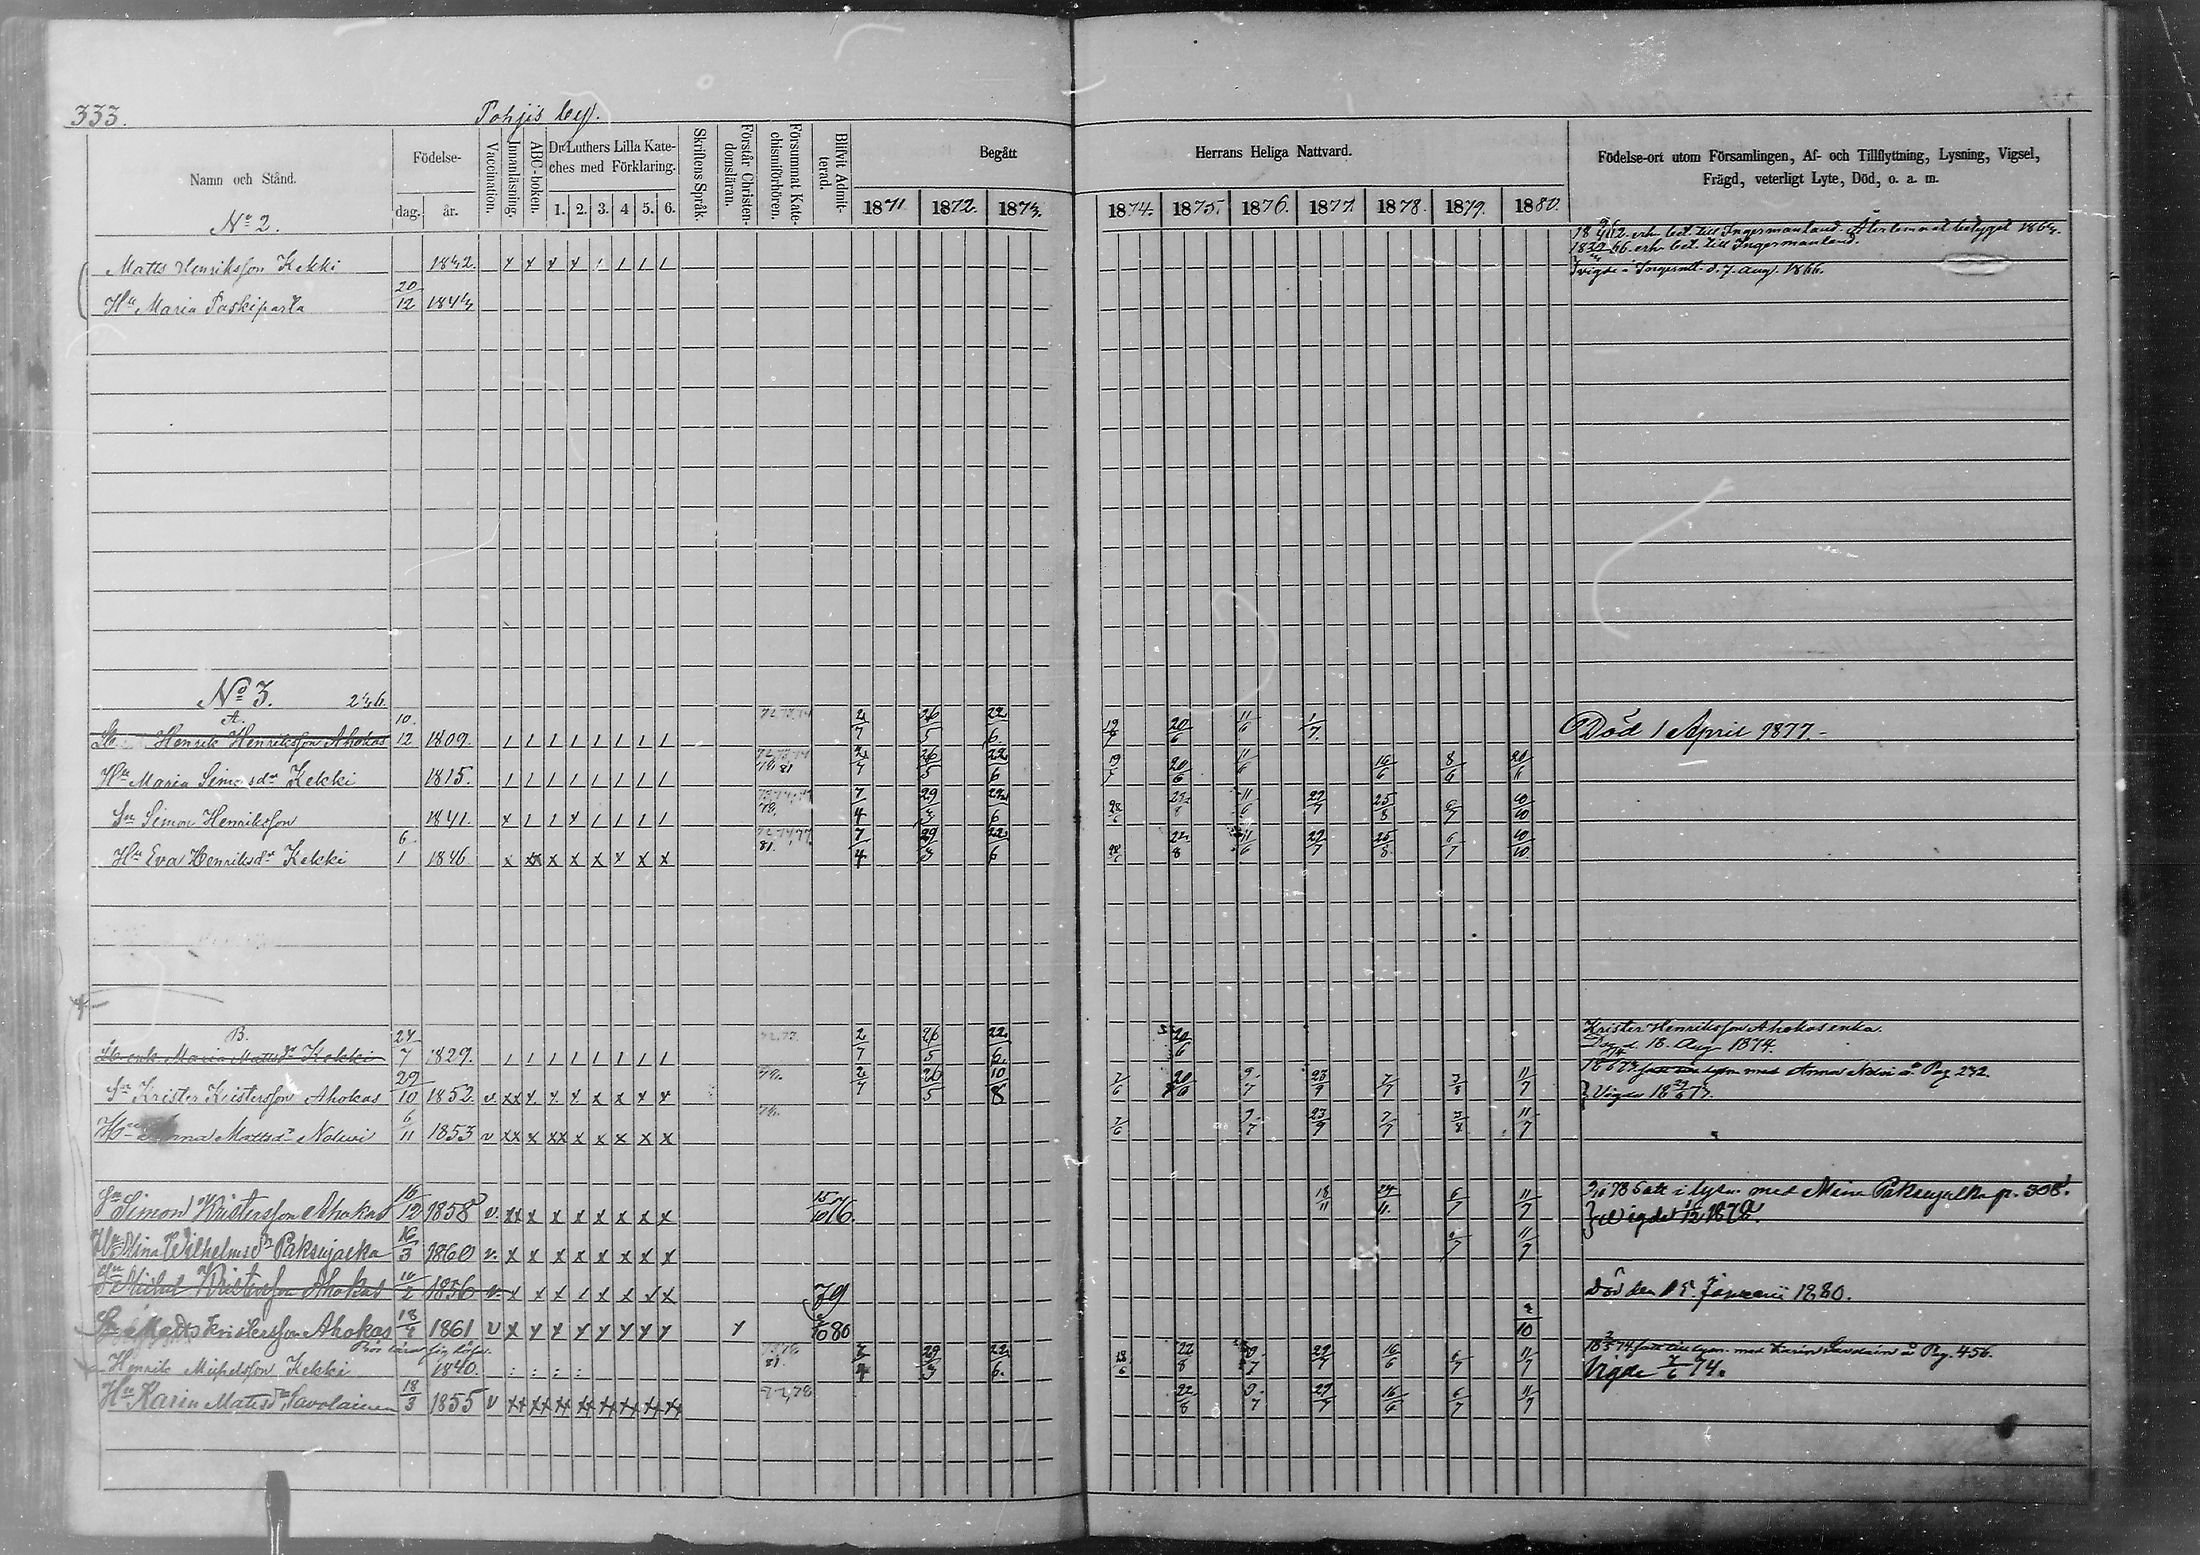 333.
Pohjis by.
Namn och Stånd.
Födelse-
dag.
år.
Vaccination.
Innanläsning.
ABC-boken.
Dr Luthers Lilla Kate-
ches med Förklaring.
1. 2. 3. 4 5. 6.
Skriftens Språk.
Förstår Christen-
domsläran.
Försummat Kate-
chismiförhören.
Blifvit Admit-
terad.
Begått
Herrans Heliga Nattvard.
1871. 1872. 1873.
1874. 1875. 1876. 1877. 1878. 1879. 1880.
Födelse-ort utom Församlingen, Af- och Tillflyttning, Lysning, Vigsel,
Frägd, veterligt Lyte, Död, o. a. m.
No 2.
Matts Henriksson Kekki 1842. x x x x / / / /
erh. bet. till Ingermanland. Återlemnat betyget 1864.
erh. bet. till Ingermanland.
vigde i Ingerml. d. 7. Aug. 1866.
Hu Maria Paskiparta 20/12 1844
No 3. 246.
A.
Henrik Henriksson Ahokas 10/12 1809. / / / / / / / / 2/7 26/5 22/6 20/6 11/6 1/7
Död 1 April 1877.
Hu Maria Simosdr Kekki 1815. / / / / / / / / 2/7 26/5 22/6 20/6 11/6 16/6 8/6 20/6
Sn Simon Henriksson 1841. x / / x / / / / 7/4 29/3 22/6 22/8 11/6 22/7 25/8 6/7 10/10
Hu Eva Henriksdr Kekki 6/1 1846 x xx x x x x x x 7/4 29/3 22/6 22/8 11/6 22/7 25/8 6/7 10/10
B.
enk. Maria Mattsdr Kekki 24/7 1829. / / / / / / / / 72.73. 2/7 26/5 22/6 20/6
Krister Henriksson Ahokas enka.
d. 18. Aug 1874.
Sn Krister Kristersson Ahokas 29/10 1852. v. xx x. x. x. x x x x 2/7 26/5 10/8 7/6 20/6 9/7 23/9 7/7 3/8 11/7
med Anna Nolvi å Pag 232.
Hu Anna Mattsdr Nolwi 6/11 1853 v xx x xx x x x x x 7/6 9/7 23/9 7/7 3/8 11/7
Sn Simon Kristersson Ahokas 16/12 1858 v. xx x x x x x x x 15/10 76. 18/11 24/11 6/7 11/7
med Mina Paksujalka p. 308.
Wigde 1878.
Hu Mina Wilhelmsdr Paksujalka 16/3 1860 v. x x x x x x x x 6/7 11/7
Sn Michel Kristersson Ahokas 10/2 1856 v. x x x / x x x x 79
Död den Januarii 1880.
Matts Kristersson Ahokas 18/4 1861 v x x x x x x x x x 80
Henrik Michelsson Kekki 1840. 29/3 22/6. 18/6 22/8 9/7 29/7 16/6 6/7 11/7
med Karin Savolain å Pag. 456.
Vigde 7/6 74.
Hu Karin Matsdr Savolainen 18/3 1855 v xx xx xx xx xx xx xx xx 77,78 22/8 9/7 29/7 16/6 6/7 11/7